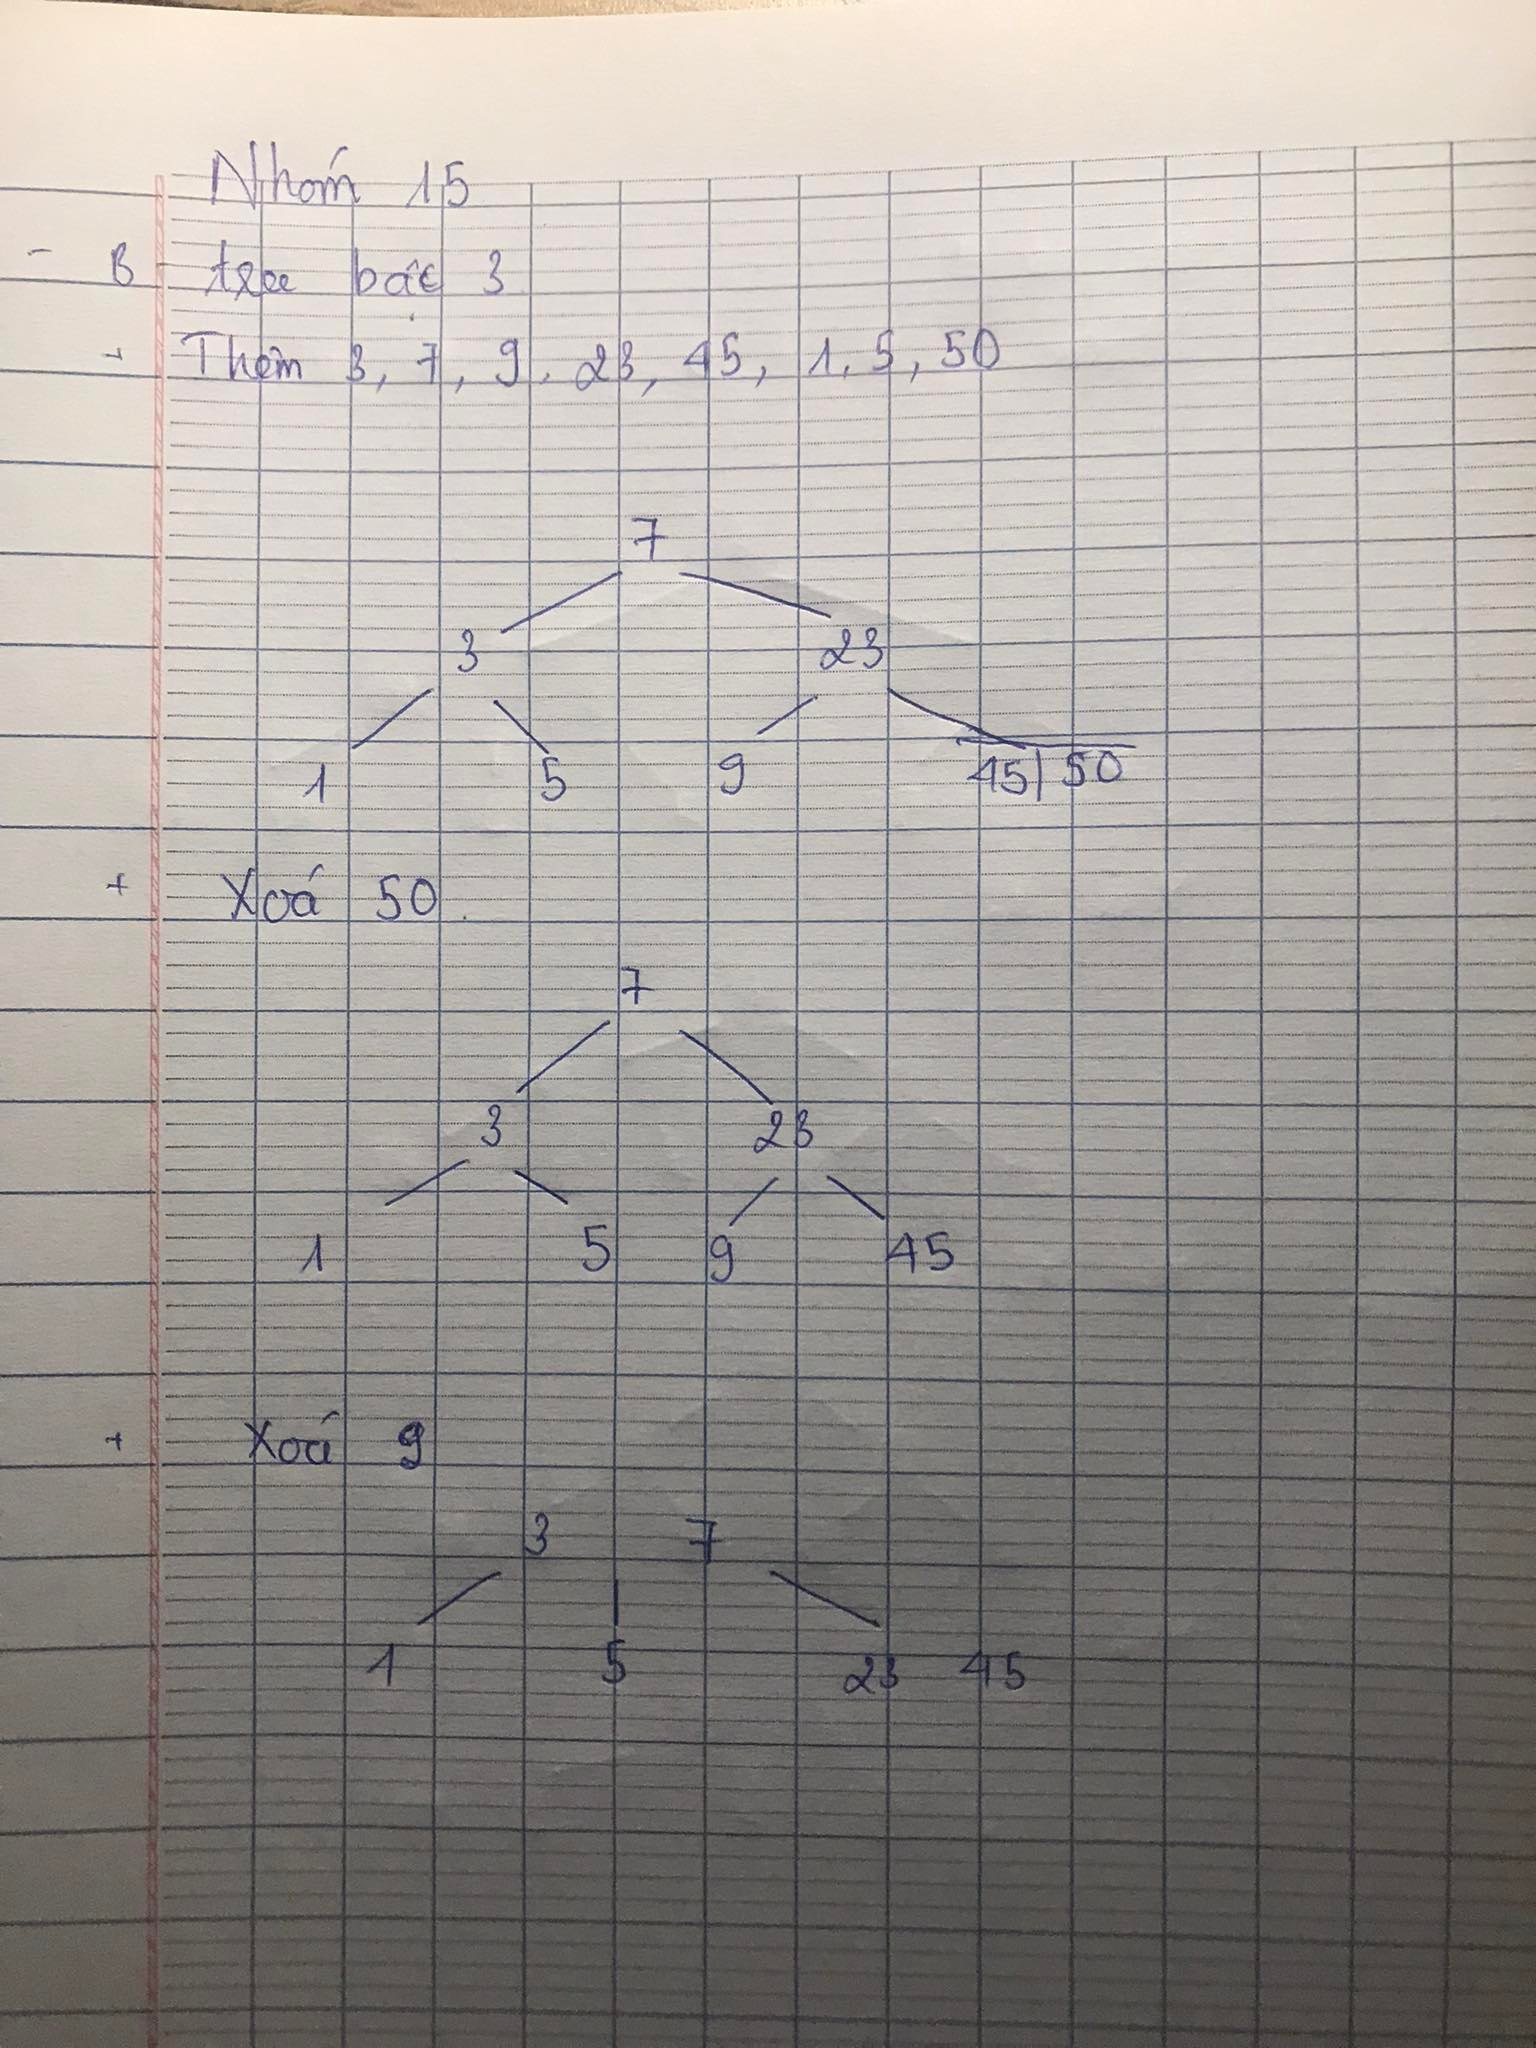 Nhóm 15
- B tree bậc 3
+ Thêm 3, 7, 9, 23, 45, 1, 5, 50
7
3 23
1 5 9 45| 50
+ Xoá 50.
7
3 23
1 5 9 45
+ Xoá 9
3 7
1 5 23 45